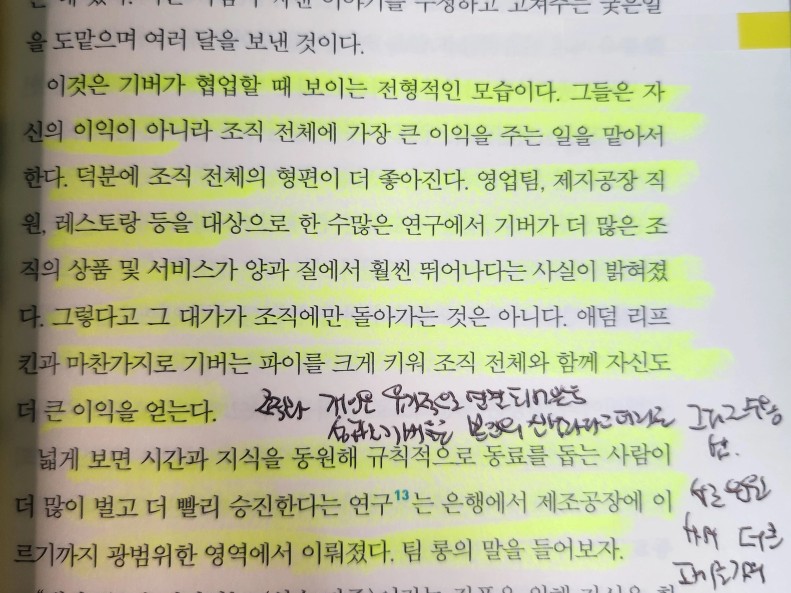 을 도맡으며 여러 달을 보낸 것이다.
이것은 기버가 협업할 때 보이는 전형적인 모습이다. 그들은 자
신의 이익이 아니라 조직 전체에 가장 큰 이익을 주는 일을 맡아서
한다. 덕분에 조직 전체의 형편이 더 좋아진다. 영업팀, 제지공장 직
원, 레스토랑 등을 대상으로 한 수많은 연구에서 기버가 더 많은 조
직의 상품 및 서비스가 양과 질에서 훨씬 뛰어나다는 사실이 밝혀졌
다. 그렇다고 그 대가가 조직에만 돌아가는 것은 아니다. 애덤 리프
킨과 마찬가지로 기버는 파이를 크게 키워 조직 전체와 함께 자신도
더 큰 이익을 얻는다.
조직과 개인은 유기적으로 연결
넓게 보면 시간과 지식을 동원해 규칙적으로 동료를 돕는 사람이
더 많이 벌고 더 빨리 승진한다는 연구13는 은행에서 제조공장에 이
르기까지 광범위한 영역에서 이뤄졌다. 팀 롱의 말을 들어보자.